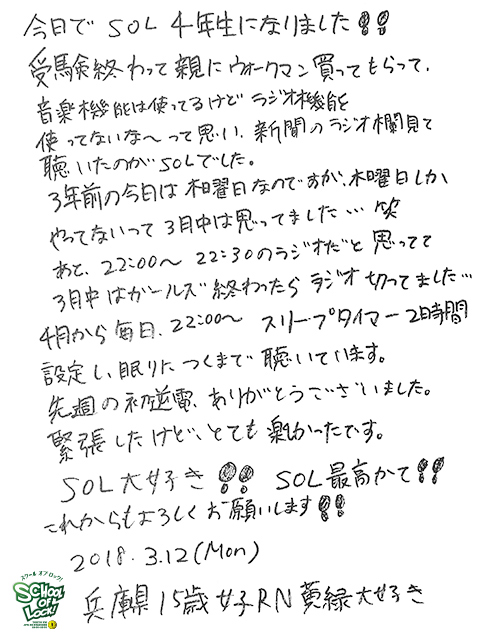 今日で SOL 4年生になりました!!
受験終わって親にウォークマン買ってもらって、
音楽機能は使ってるけど ラジオ機能を
使ってないな〜って思い、新聞のラジオ欄見て
聴いたのがSOLでした。
3年前の今日は木曜日なのですが、木曜日しか
やってないって3月中は思ってました…笑
あと、22:00〜 22:30のラジオだと思ってて
3月中はガールズ終わったらラジオ切ってました…
4月から毎日、22:00〜 スリープタイマー2時間
設定し、眠りにつくまで聴いています。
先週の初逆電、ありがとうございました。
緊張したけど、とても楽しかったです。
SOL大好き!! SOL最高かて!!
これからもよろしくお願いします!!
2018.3.12(Mon)
スクール オブ ロック!
SCHOOL OF LOCK!
兵庫県 15歳 女子 RN 黄緑大好き